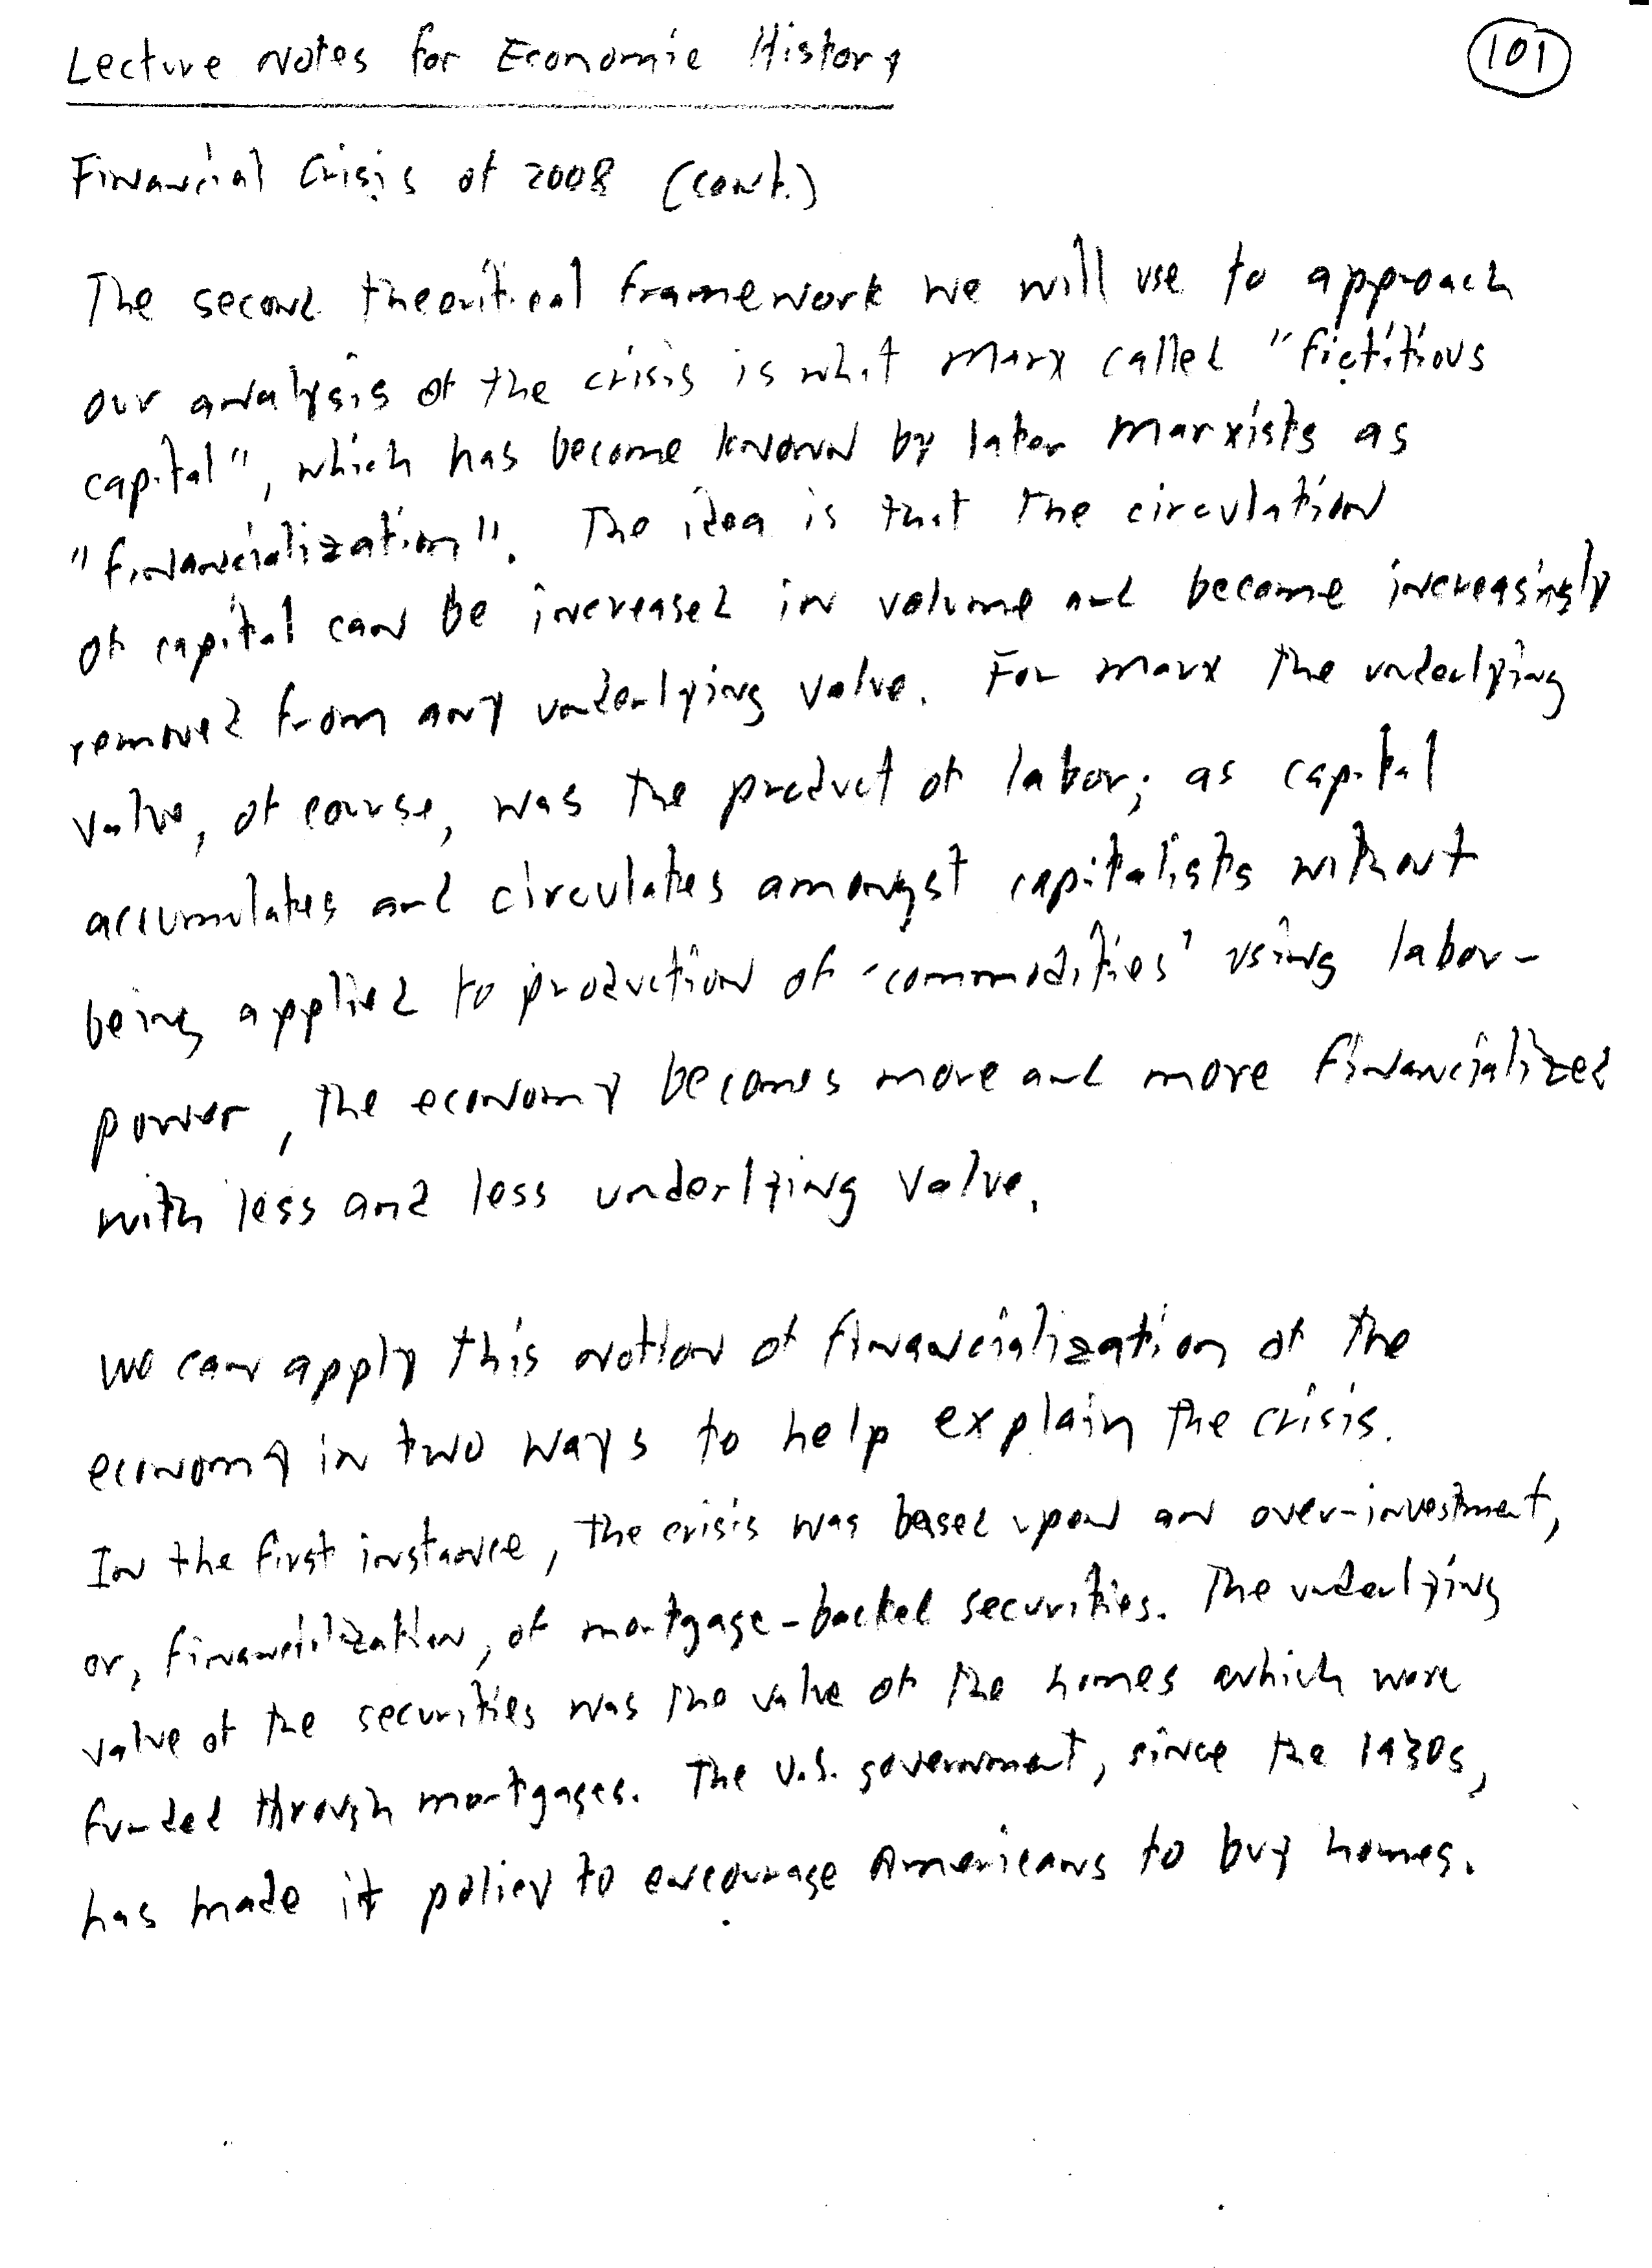 Lecture Notes for Economic History
101
Financial Crisis of 2008 (cont.)
The second theoritical framework we will use to approach
our analysis of the crisis is what Marx called "fictitious
capital", which has become known by later Marxists as
"financialization". The idea is that the circulation
of capital can be increased in volume and become increasingly
removed from any underlying value. For Marx the underlying
value, of course, was the product of labor; as capital
accumulates and circulates amongst capitalists without
being applied to production of 'commodities' using labor-
power, the economy becomes more and more financialized
with less and less underlying value.
We can apply this notion of financialization of the
economy in two ways to help explain the crisis.
In the first instance, the crisis was based upon an over-investment,
or, financialization, of mortgage-backed securities. The underlying
value of the securities was the value of the homes which were
funded through mortgages. The U.S. government, since the 1930s,
has made it policy to encourage Americans to buy homes.